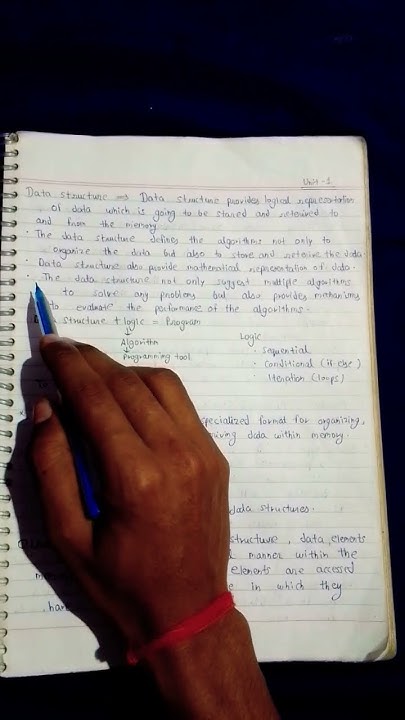 Unit - 1
Data structure ⇒ Data structure provides logical representation
of data which is going to be stored and retrieved to
and from the memory
• The data structure defines the algorithms not only to
organize the data but also to store and retrieve the data.
• Data structure also provide mathematical representation of data.
• The data structure not only suggest multiple algorithms
to solve any problem but also provides mechanisms
to evaluate the performance of the algorithms.
structure + logic = Program
Algorithm
Programming tool
Logic
• Sequential
• Conditional (if else)
Iteration (loops)
To
specialized format for organizing,
data within memory.
data structures.
structure, data elements
manner within the
elements are accessed
in which they